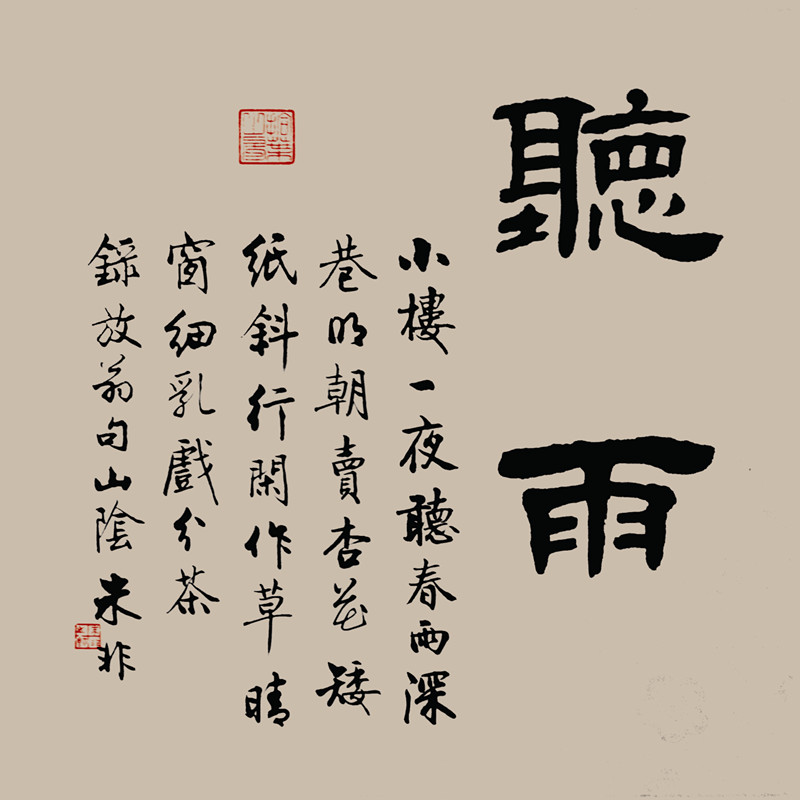 聽雨
小樓一夜聽春雨深
巷明朝賣杏花矮
紙斜行閑作草晴
窗細乳戲分茶
錄放翁句山陰朱非